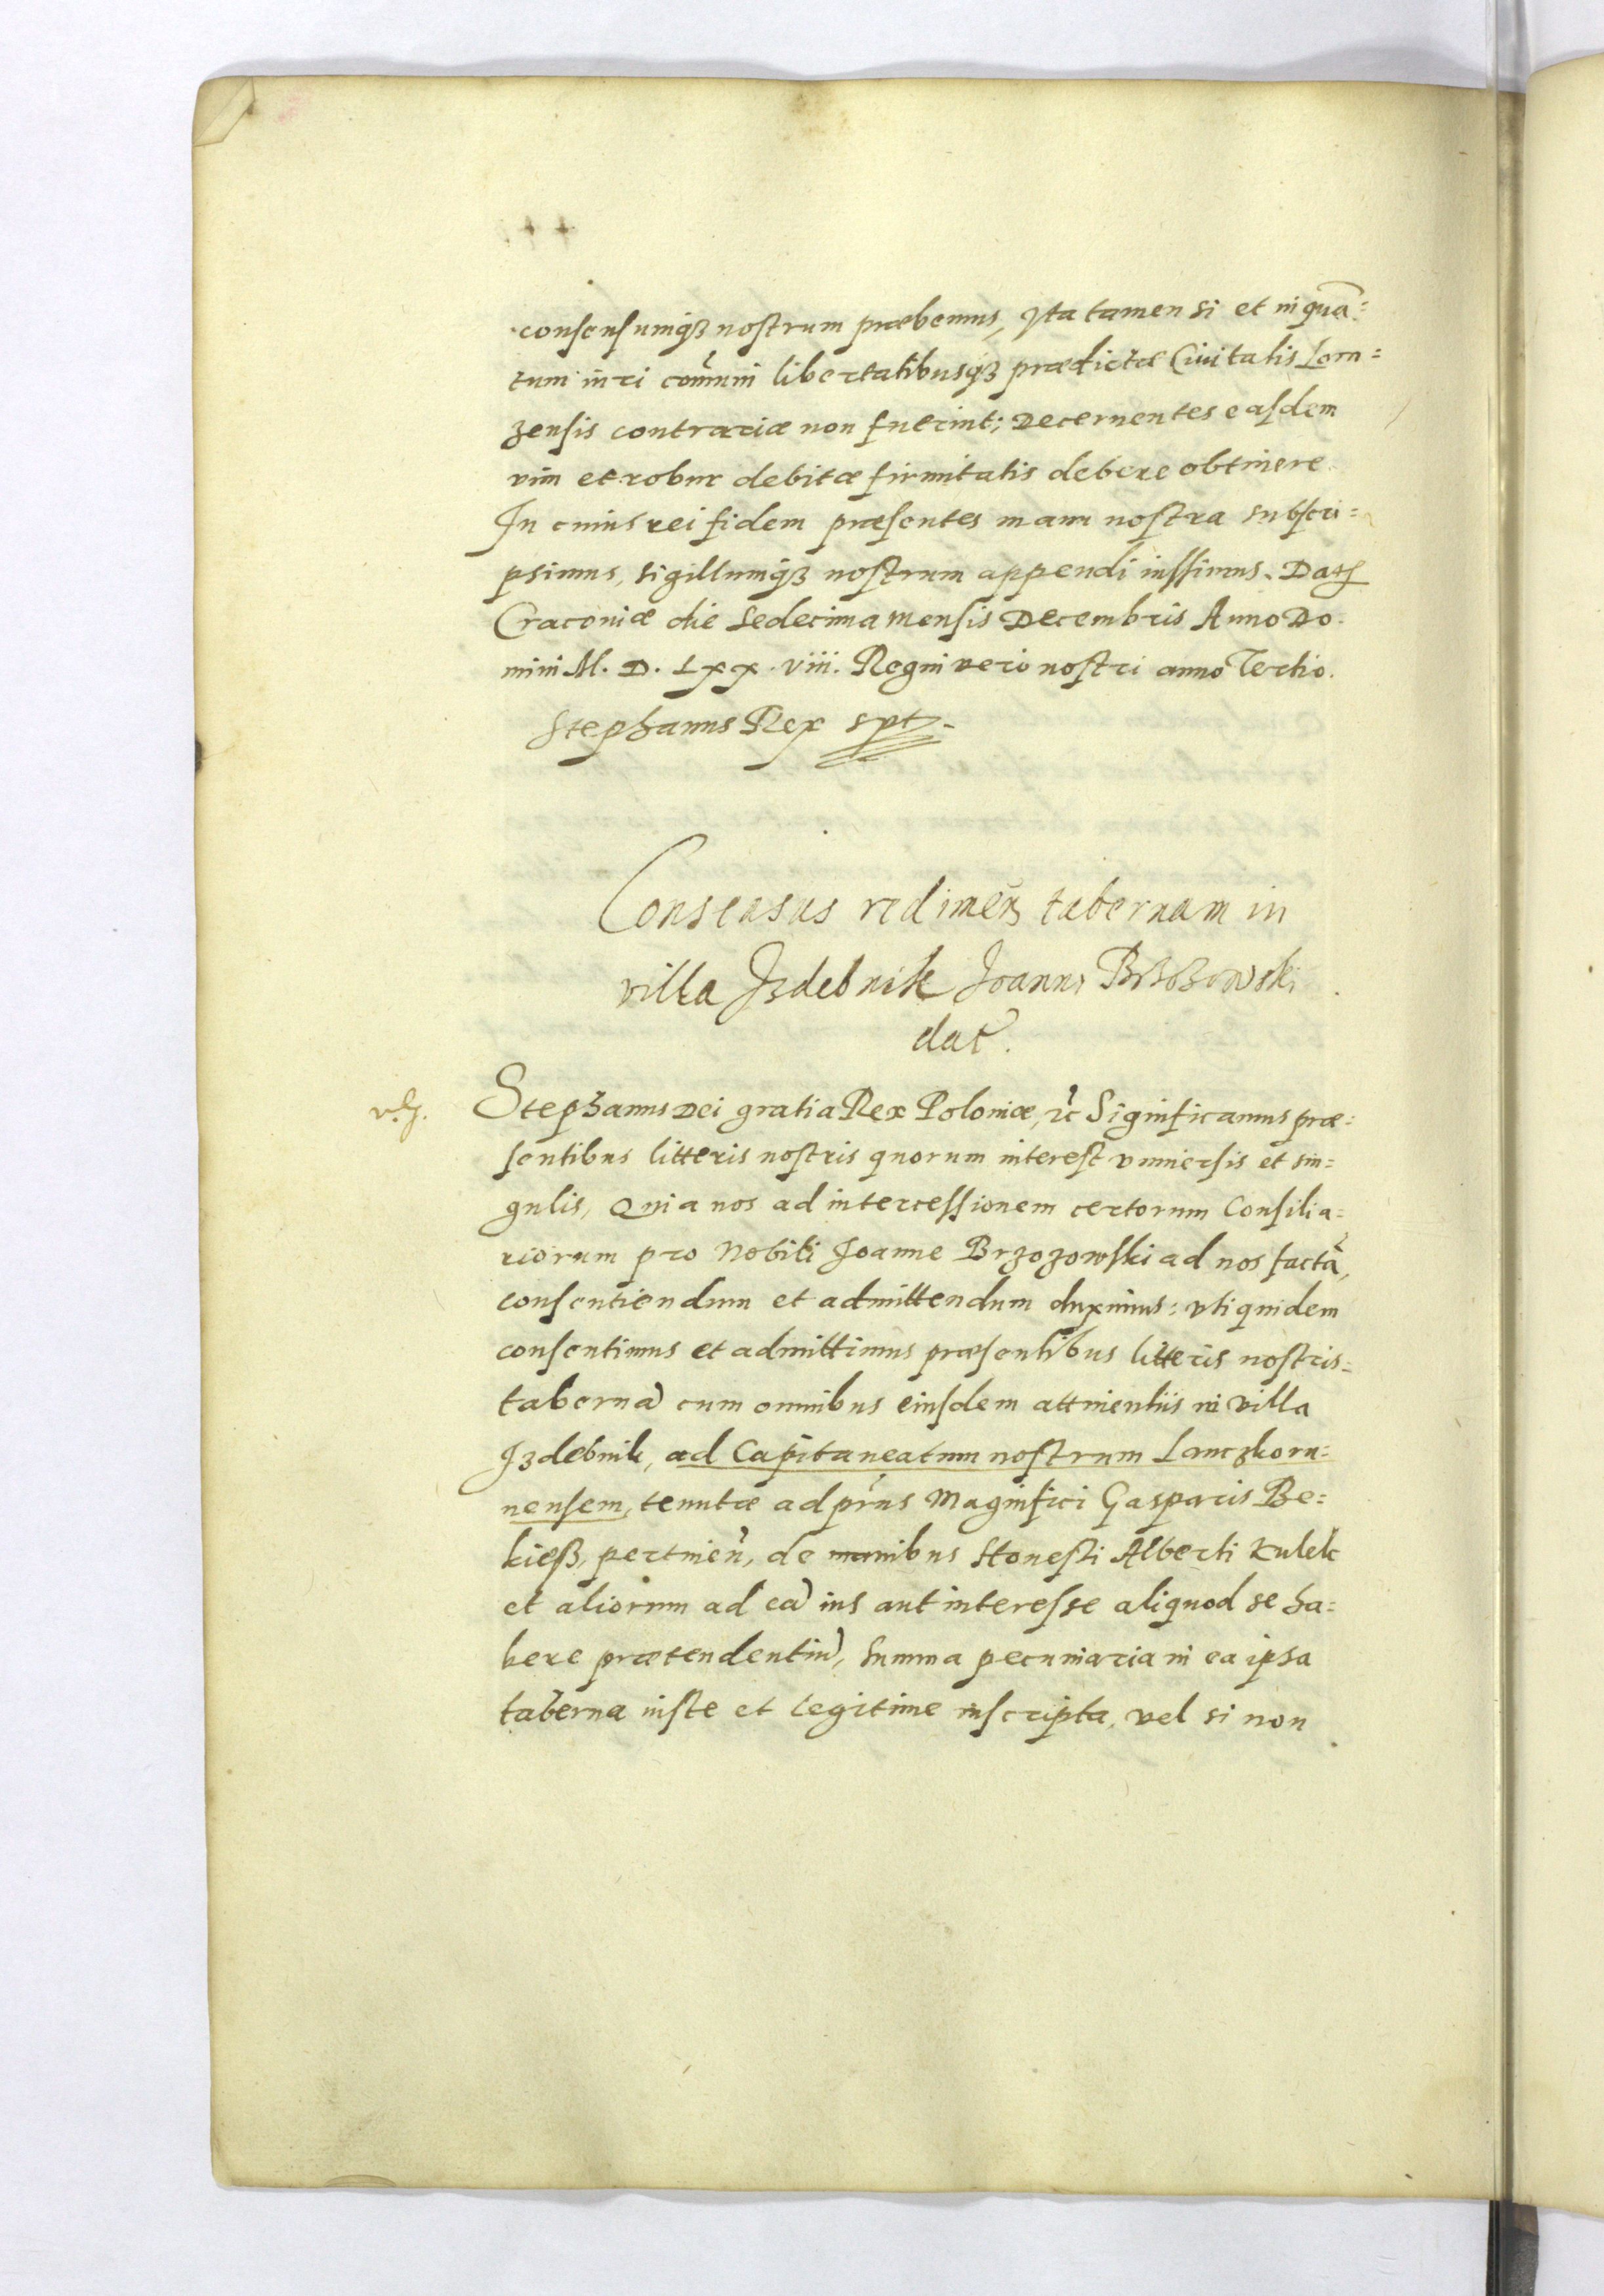 consensumqȝ nostrum præbemus, Ita tamen si et in quã=
tum iuri com̃uni libertatibusqȝ prædictæ Ciuitatis Lom=
zensis contrariæ non fuerint; Decernentes easdem
vim et robur debitæ firmitatis debere obtinere
In cuius rei fidem præsentes manu nostra subscri=
psimus, sigillumqȝ nostrum appendi iussimus. Datꝭ
Cracouiæ die Sedecima mensis Decembris Anno Do.
mini M. D. LXX. viii. Regni vero nostri anno Tertio.
Stephanus Rex spt.
Consensus redimen̄ tabernam in
villa Izdebnik Joanni Brzozowski
dat̃.
Stephanus Dei gratia Rex Poloniæ, ꝛc̃ Significamus præ=
sentibus litteris nostris quorum interest vniuersis et sin=
gulis, Quia nos ad intercessionem certorum Consilia=
riorum pro Nobili Joanne Brzozowski ad nos factã,
consentiendum et admittendum duximus: vti quidem
consentimus et admittimus præsentibus litteris nostris=
tabernã cum omnibus eiusdem attinentiis in villa
Izdebnik, ad Capitaneatum nostrum Lanczkoru=
nensem, tenutæ ad pr̃ns Magnifici Gasparis Be=
kieß, pertinen̄, de manibus Honesti Alberti Kulek
et aliorum ad eã ius aut interesse aliquod se ha=
bere prætendentiũ, Summa pecuniaria in ea ipsa
taberna iuste et legitime inscripta, vel si non